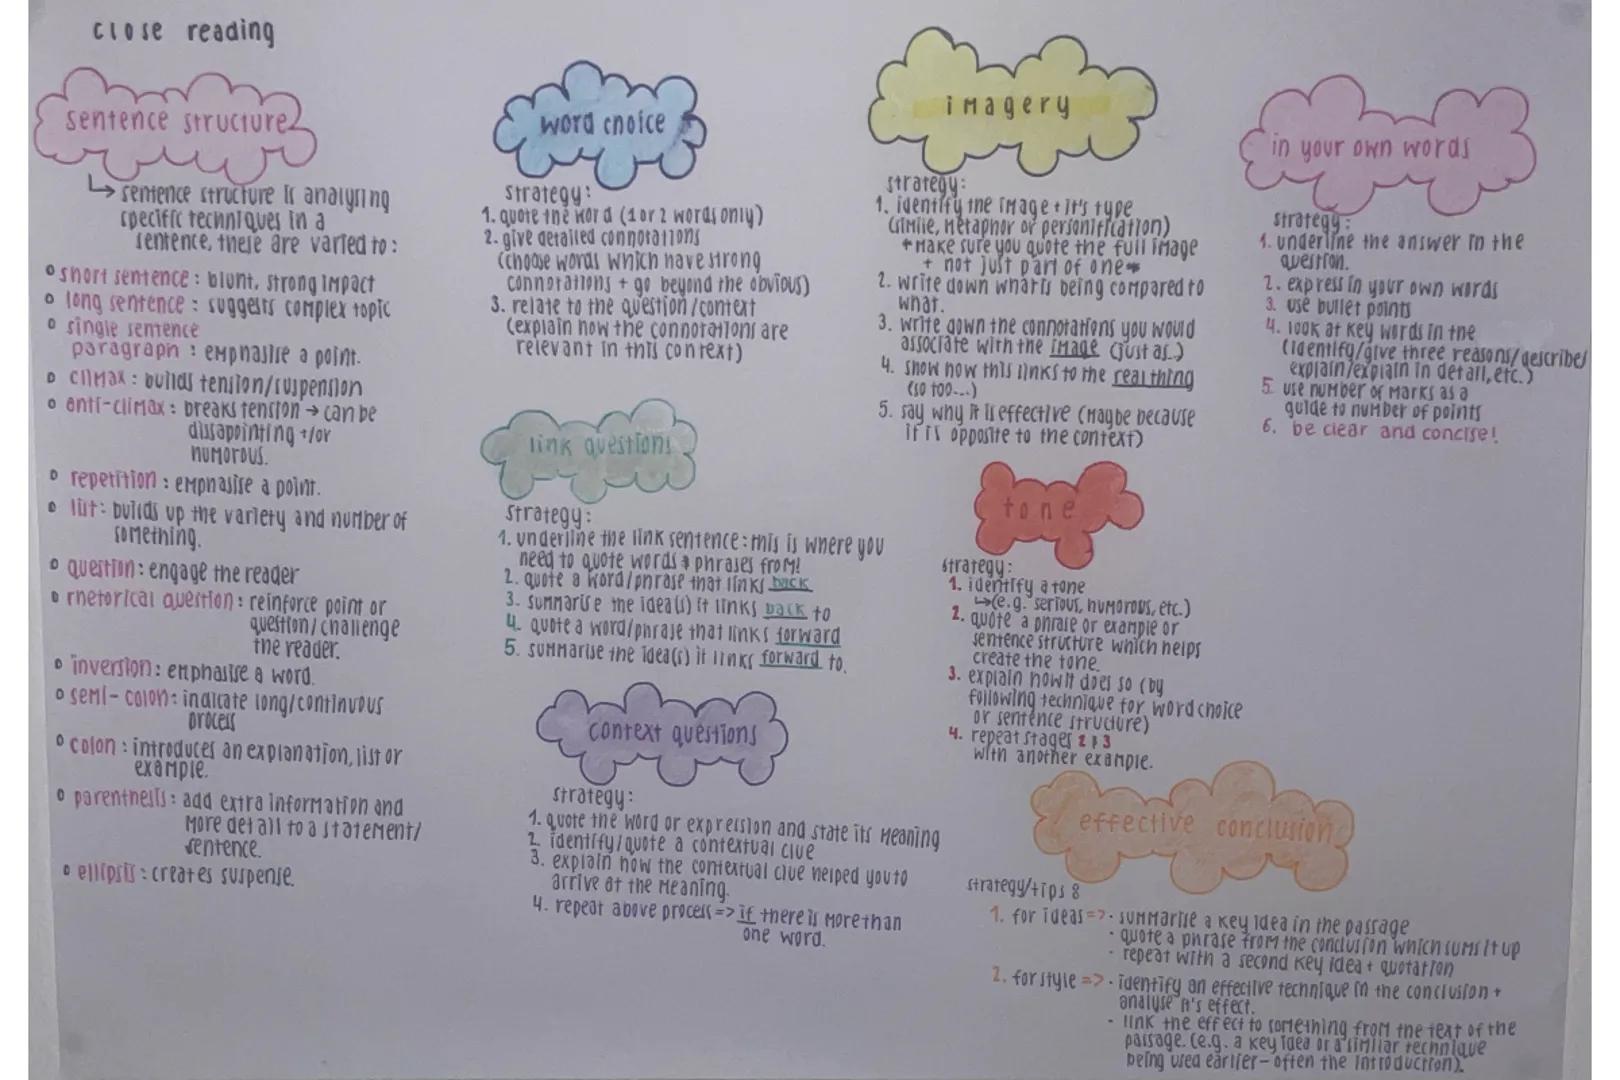 close reading
sentence structure
↳ sentence structure is analysing
specific techniques in a
sentence, these are varied to:
° short sentence: blunt, strong impact
° long sentence: suggests complex topic
° single sentence
paragraph: emphasise a point.
° climax: builds tension/suspension
° anti-climax: breaks tension → can be
dissapointing +/or
humorous.
° repetition: emphasise a point.
° list: builds up the variety and number of
something.
° question: engage the reader
° rhetorical question: reinforce point or
question/challenge
the reader.
° inversion: emphasise a word.
° semi-colon: indicate long/continuous
process
° colon: introduces an explanation, list or
example.
° parenthesis: add extra information and
more detail to a statement/
sentence.
° ellipsis: creates suspense.
word choice
strategy:
1. quote the word (1 or 2 words only)
2. give detailed connotations
(choose words which have strong
connotations + go beyond the obvious)
3. relate to the question/context
(explain how the connotations are
relevant in this context)
link questions
strategy:
1. underline the link sentence: this is where you
need to quote words & phrases from!
2. quote a word/phrase that links back
3. summarise the idea(s) it links back to
4. quote a word/phrase that links forward
5. summarise the idea(s) it links forward to.
context questions
strategy:
1. quote the word or expression and state its meaning
2. identify/quote a contextual clue
3. explain how the contextual clue helped you to
arrive at the meaning.
4. repeat above process => if there is more than
one word.
imagery
strategy:
1. identify the image + it's type
(simile, metaphor or personification)
* make sure you quote the full image
+ not just part of one*
2. write down what is being compared to
what.
3. write down the connotations you would
associate with the image (just as..)
4. show how this links to the real thing
(so too...)
5. say why it is effective (maybe because
it is opposite to the context)
tone
strategy:
1. identify a tone
↳(e.g. serious, humorous, etc.)
2. quote a phrase or example or
sentence structure which helps
create the tone.
3. explain how it does so (by
following technique for word choice
or sentence structure)
4. repeat stages 2 & 3
with another example.
effective conclusion
strategy/tips:
1. for ideas => · summarise a key idea in the passage
· quote a phrase from the conclusion which sums it up
· repeat with a second key idea + quotation
2. for style => · identify an effective technique in the conclusion +
analyse it's effect.
- link the effect to something from the text of the
passage. (e.g. a key idea or a similar technique
being used earlier - often the introduction).
in your own words
strategy:
1. underline the answer in the
question.
2. express in your own words
3. use bullet points
4. look at key words in the
(identify/give three reasons/describe/
explain/explain in detail, etc.)
5. use number of marks as a
guide to number of points
6. be clear and concise!